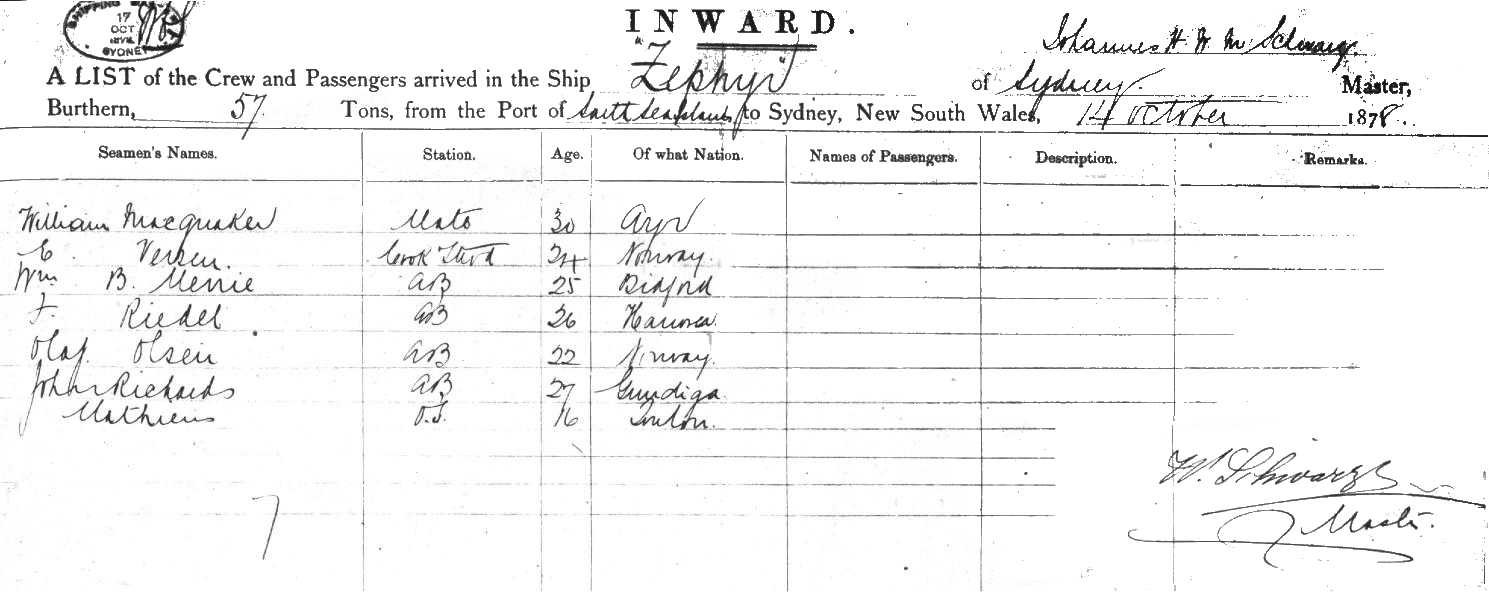 SHIPPING
17
OCT
SYDNEY
INWARD.
Johannes H. W. M. Schwarz
A LIST of the Crew and Passengers arrived in the Ship "Zephyr" of Sydney Master,
Burthern, 57 Tons, from the Port of South Sea Islands to Sydney, New South Wales, 14 October 1878.
Seamen's Names. Station. Age. Of what Nation. Names of Passengers. Description. Remarks.
William Macquaker Mate 30 Ayr
E. Versen. Cook & Stwd 24 Norway.
Wm B. Merrie AB 25 Bidford
F. Riedel AB 26 Hanover
Olaf Olsen AB 22 Norway.
John Richards AB 27
Mathieus O.S. 16
7
W. Schwarz
Master.